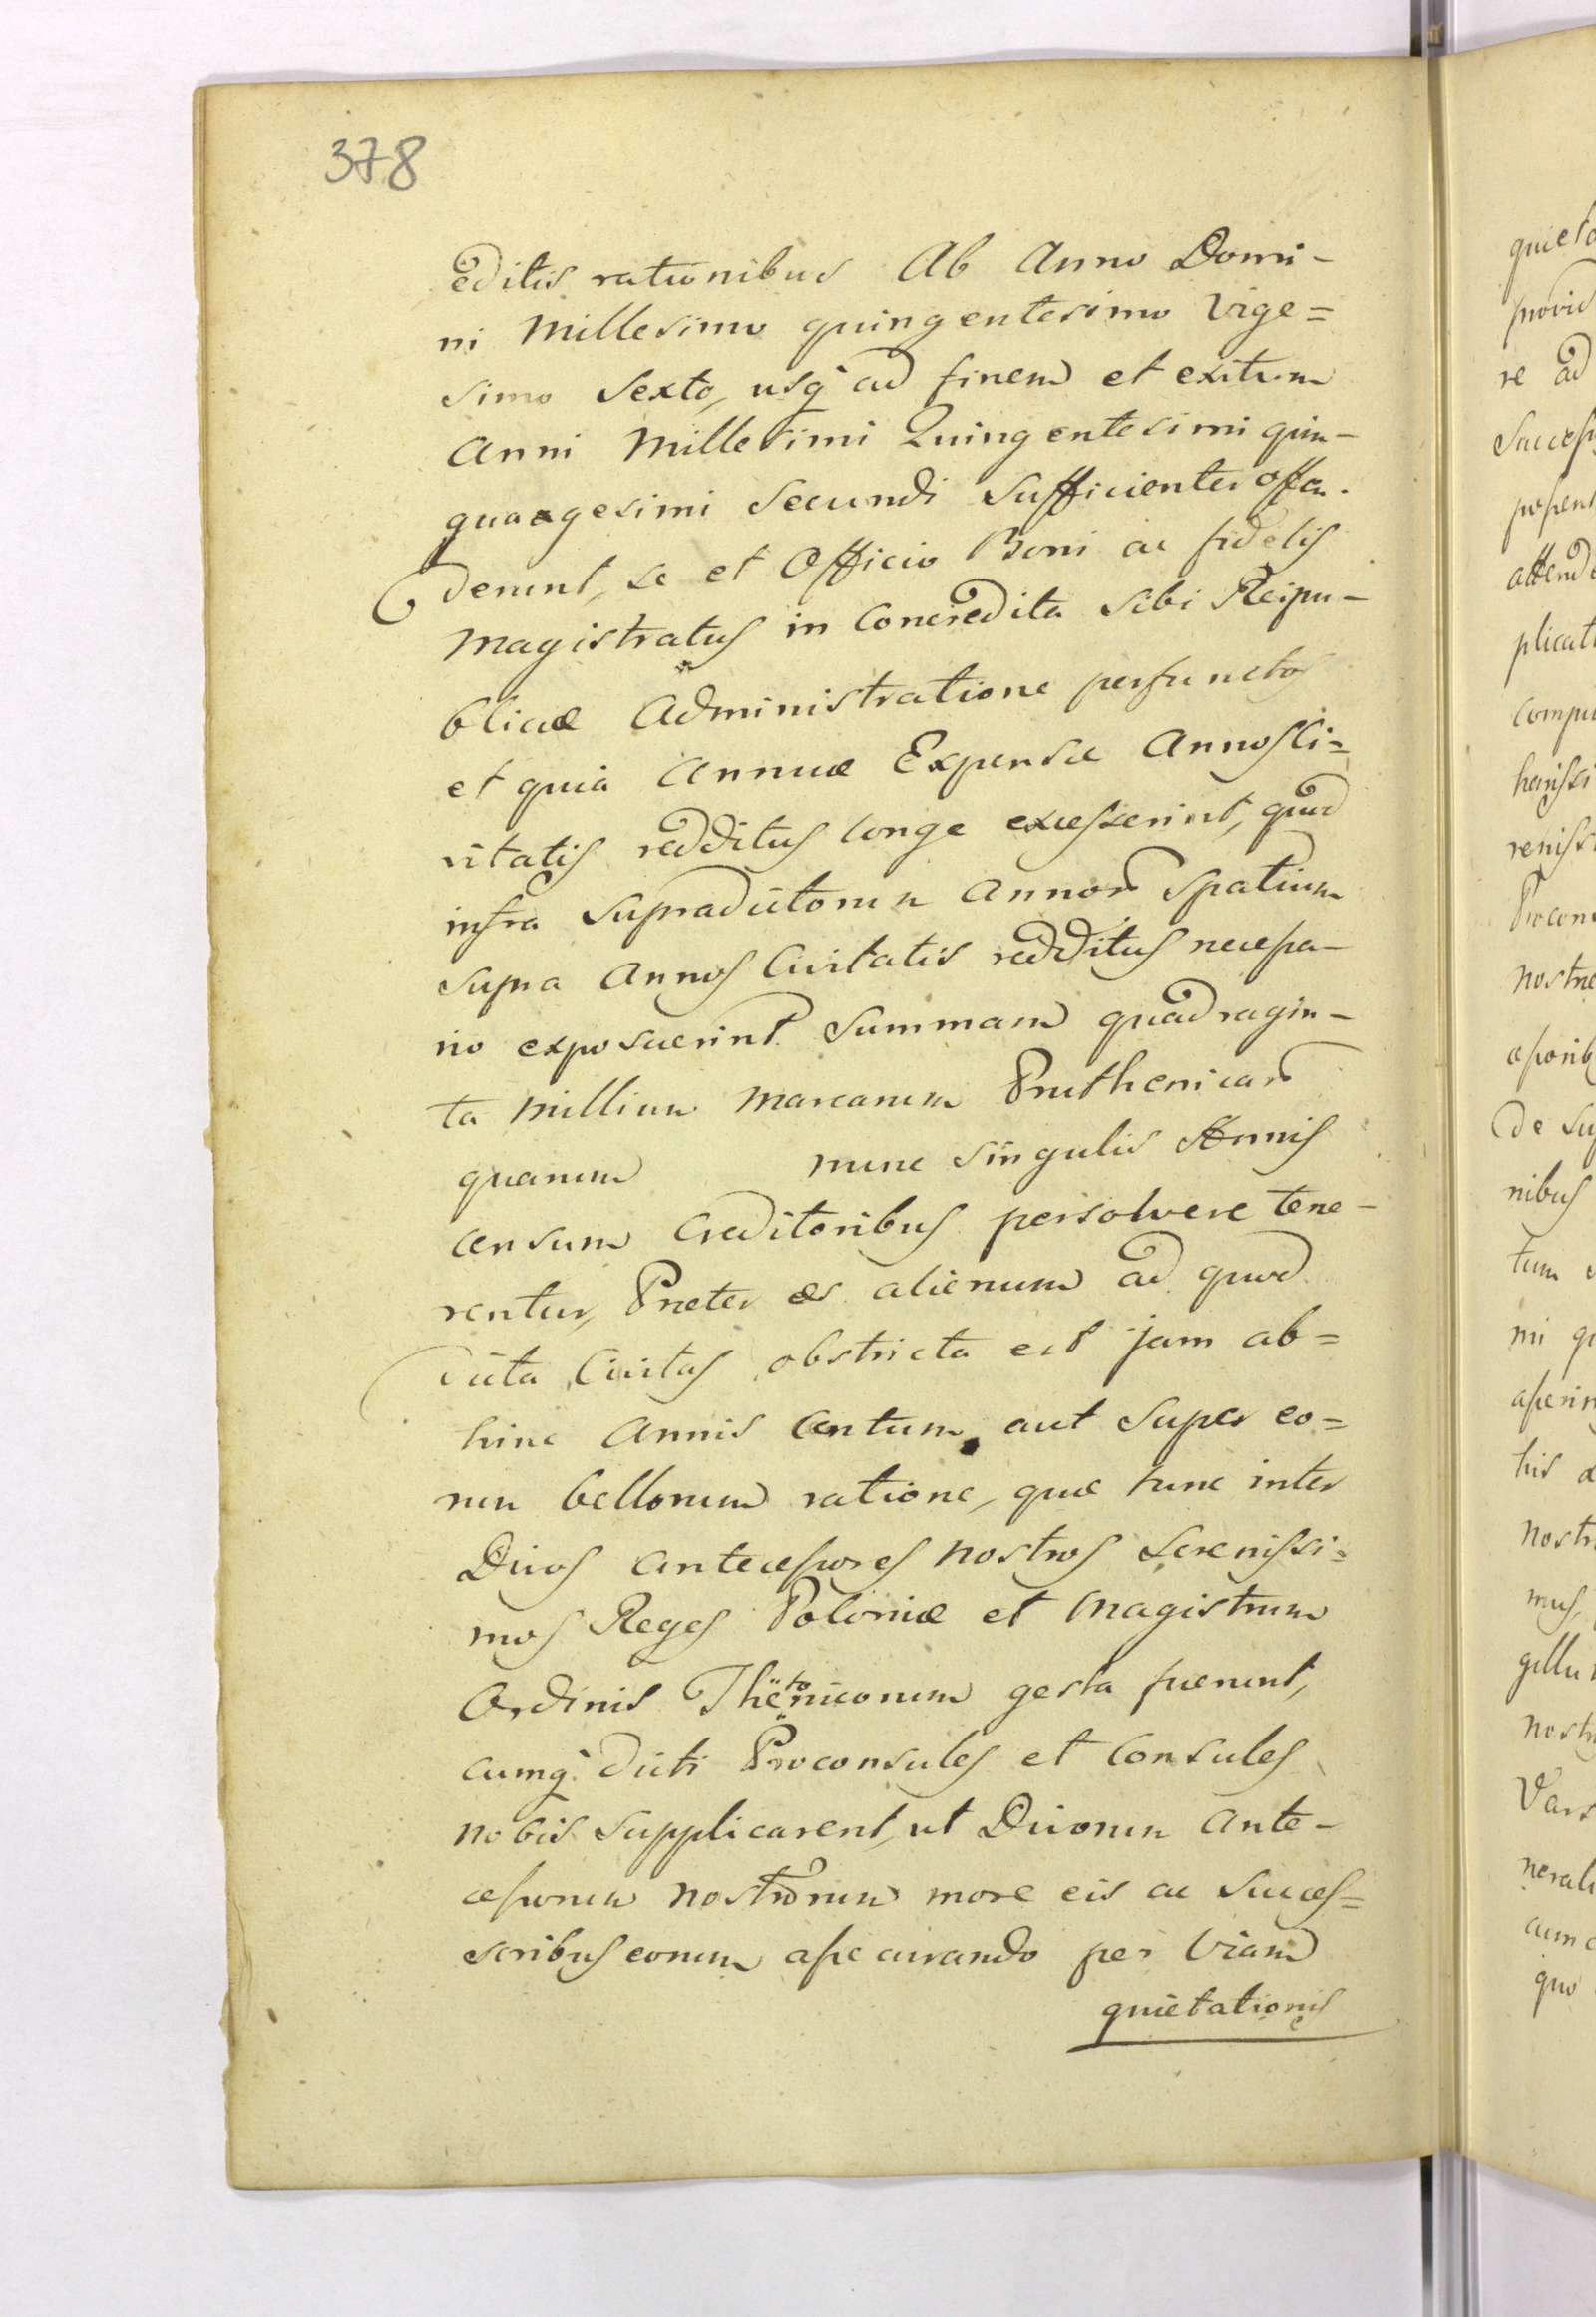 378
editis rationibus Ab Anno Domi-
ni Millesimo quingentesimo Vige=
simo Sexto, usq ad finem et exitum
Anni Millesimi Quingentesimi quin-
quagesimi Secundi Sufficienter osten-
derunt, se et Officio Boni ac fidelis
Magistratus in Concredita sibi Reipu-
blicæ Administratione perfunctos
et quia Annuæ Expensæ Annos Ci=
vitatis redditus longe excesserint, quod
infra Supradictorum Annor Spatium
supra Annos Civitatis redditus necessa-
rio exposuerint Summam quadragin-
ta Millium Marcarum Pruthenicar
quarum nunc singulis Annis
censum Creditoribus persolvere tene-
rentur, Preter æs alienum ad quod
dicta Civitas obstricta est jam ab=
hinc Annis Centum aut Super eo=
rum bellorum ratione, quæ tunc inter
Divos Antecessores Nostros Serenissi=
mos Reges Poloniæ et Magistrum
Ordinis Theutonicorum gesta fuerunt,
cumq dicti Proconsules et Consules
nobis Supplicarent, ut Divorum Ante-
cessorum Nostrorum more eis ac Succes=
soribus eorum assecurando per Viam
quietationis
quieta
provid
re ad
Success
attende
plicati
compu
renissi
Procon
nostre
de Su
nibus
tum
mi qu
his
nostr
mus,
gillu
nostr
Vars
nerali
cum
quo